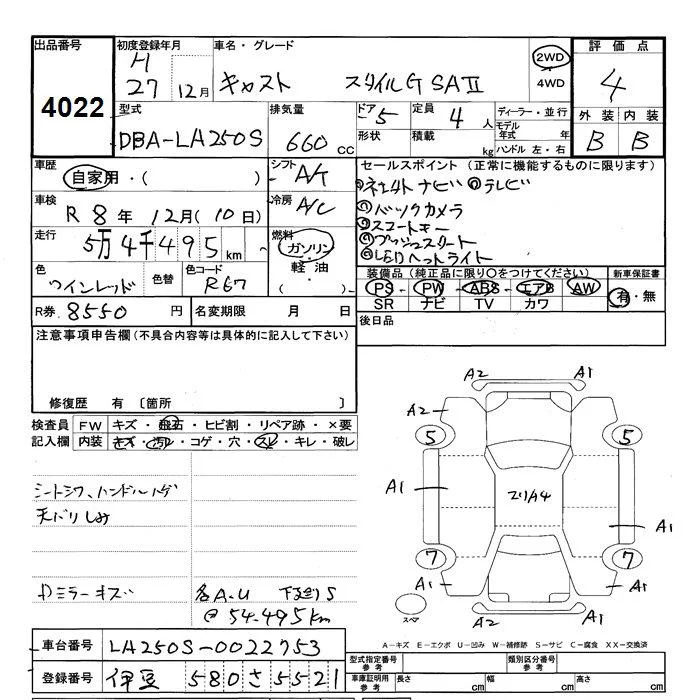 出品番号
4022
初度登録年月
H
27 12月
車名・グレード
キャスト スタイルG SAⅡ
2WD
4WD
評価点
4
外装 内装
B B
型式
DBA-LA250S
排気量
660 cc
ドア
5
形状
定員
4 人
積載
kg
ディーラー・並行
モデル
年式 年
ハンドル 左・右
車歴
自家用・( )
シフト
A/T
車検
R 8年 12月(10日)
冷房
A/C
走行
5万4千495km
燃料
ガソリン
軽油
( )
色
ワインレッド
色替
色コード
R67
R券 8550 円
名変期限 月 日
セールスポイント (正常に機能するものに限ります)
①ネェクト ナビ ②テレビ
③バックカメラ
④スマートキー
⑤プッシュスタート
⑥LEDヘッドライト
装備品 (純正品に限り〇をつけてください)
PS - PW - ABS - エアB AW
SR ナビ TV カワ
新車保証書
有・無
後日品
注意事項申告欄 (不具合内容等は具体的に記入して下さい)
修復歴 有 〔箇所 〕
検査員
記入欄
FW キズ・飛石・ヒビ割・リペア跡・×要
内装 キズ・汚れ・コゲ・穴・スレ・キレ・破レ
シートシワ、ハンドルハゲ
天バリしみ
Dミラーキズ
各A.U 下廻りS
@ 54.495km
A2 A1
A2
5 5
A1
A1
7 7
A1 A1
A2
スペア
A-キズ E-エクボ U-凹み W-補修跡 S-サビ C-腐食 XX-交換済
車台番号 LA250S-0022753
登録番号 伊豆 580 さ 5521
型式指定番号
参考
類別区分番号
参考
車庫証明用
参考
長さ cm 幅 cm 高さ cm